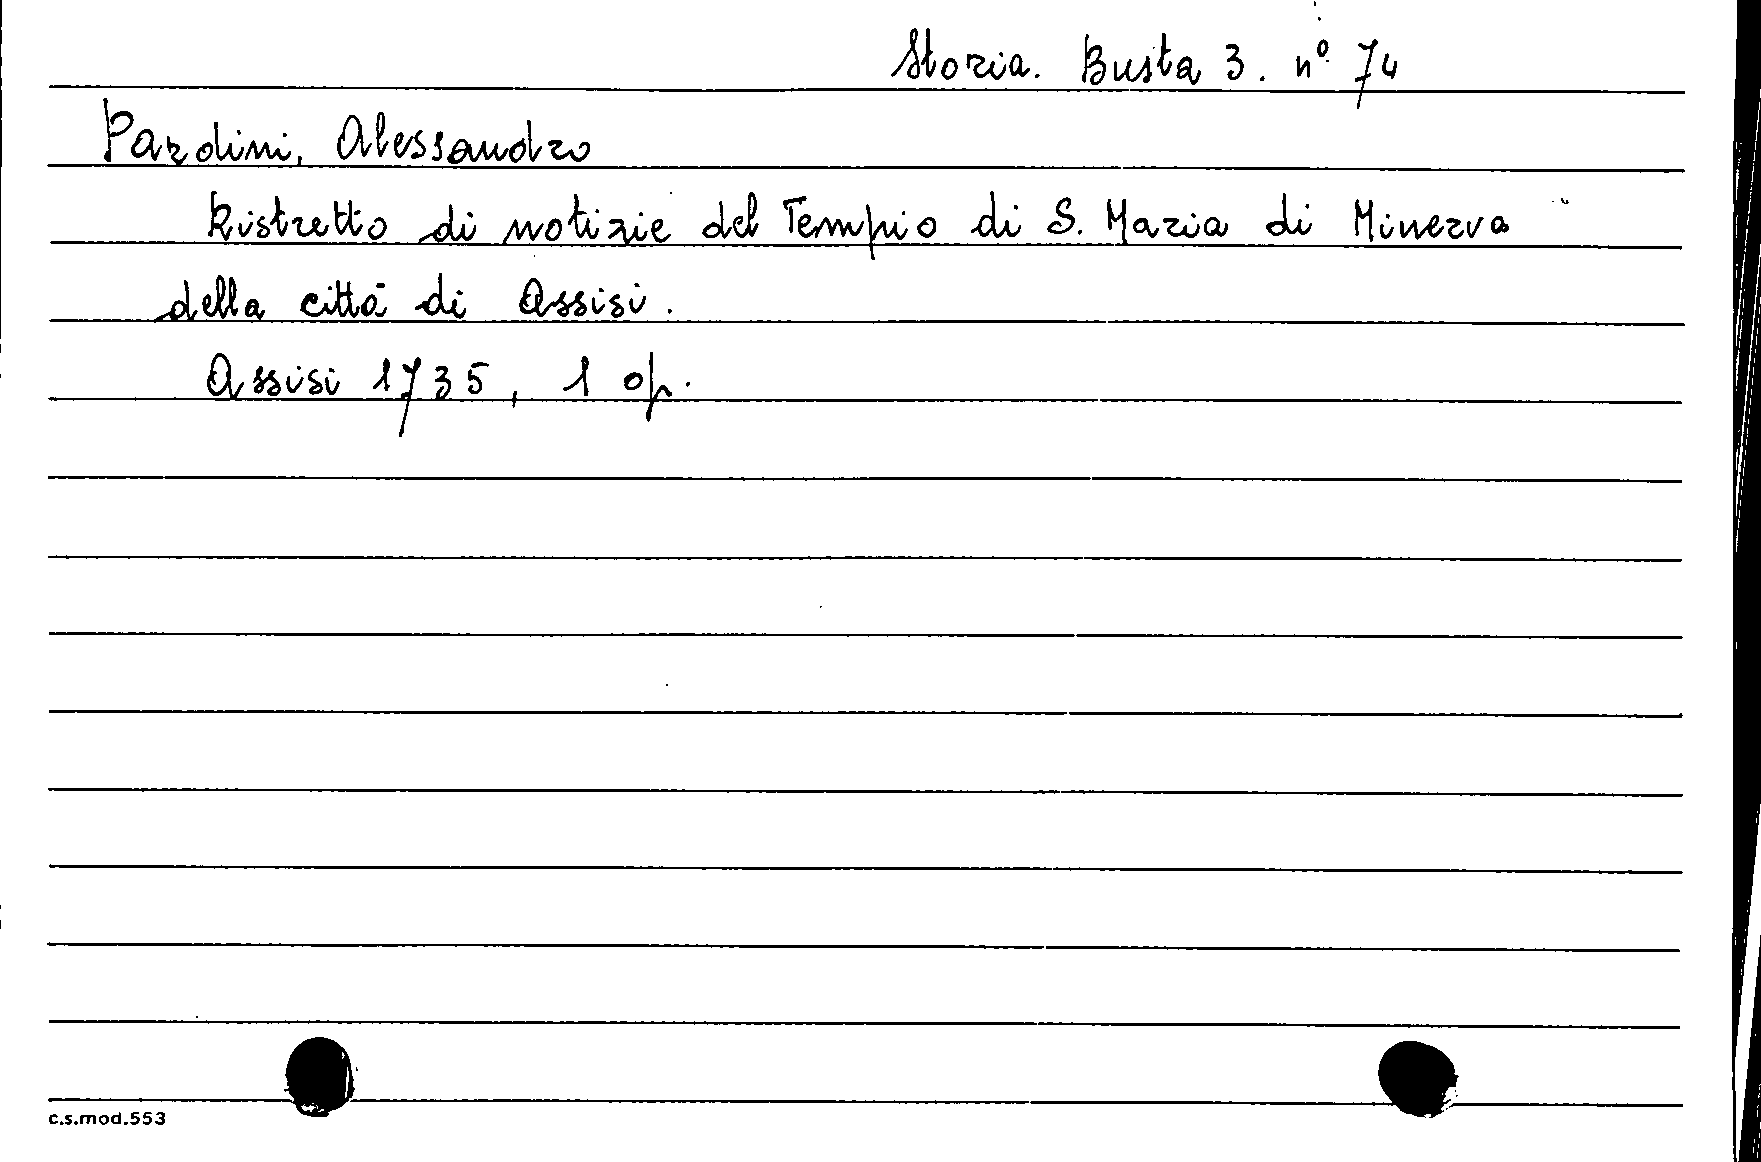 Storia. Busta 3. nº 74
Pardini, Alessandro
Ristretto di notizie del Tempio di S. Maria di Minerva
della città di Assisi.
Assisi 1735, 1 op.
c.s.mod.553